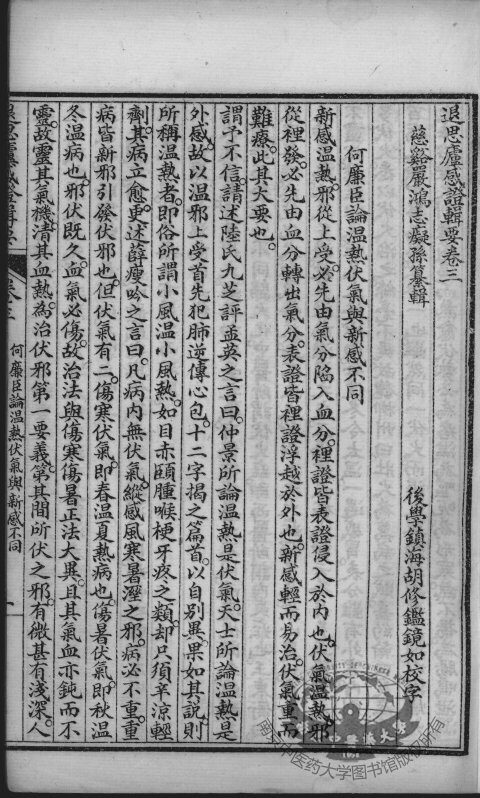 退思廬感證輯要卷三
慈谿嚴鴻志癡孫纂輯
後學鎮海胡修鑑鏡如校字
何廉臣論溫熱伏氣與新感不同
新感溫熱。邪從上受。必先由氣分陷入血分。裡證皆表證侵入於內也。伏氣溫熱。邪
從裡發。必先由血分轉出氣分。表證皆裡證浮越於外也。新感輕而易治。伏氣重而
難療。此其大要也。
謂予不信。請述陸氏九芝評孟英之言曰。仲景所論溫熱是伏氣。天士所論溫熱是
外感。故以溫邪上受首先犯肺逆傳心包。十二字揭之篇首。以自別異。果如其說。則
所稱溫熱者。即俗所謂小風溫小風熱。如目赤頤腫喉梗牙疼之類。却只須辛涼輕
劑。其病立愈。更述薛瘦吟之言曰。凡病內無伏氣。縱感風寒暑溼之邪。病必不重。重
病皆新邪引發伏邪也。但伏氣有二。傷寒伏氣。即春溫夏熱病也。傷暑伏氣。即秋溫
冬溫病也。邪伏既久。血氣必傷。故治法與傷寒傷暑正法大異。且其氣血亦鈍而不
靈。故靈其氣機。清其血熱。為治伏邪第一要義。第其間所伏之邪。有微甚有淺深。人
退思廬感證輯要
卷三
何廉臣論溫熱伏氣與新感不同
一
中醫藥大學
南京中医药大学图书馆版权所有